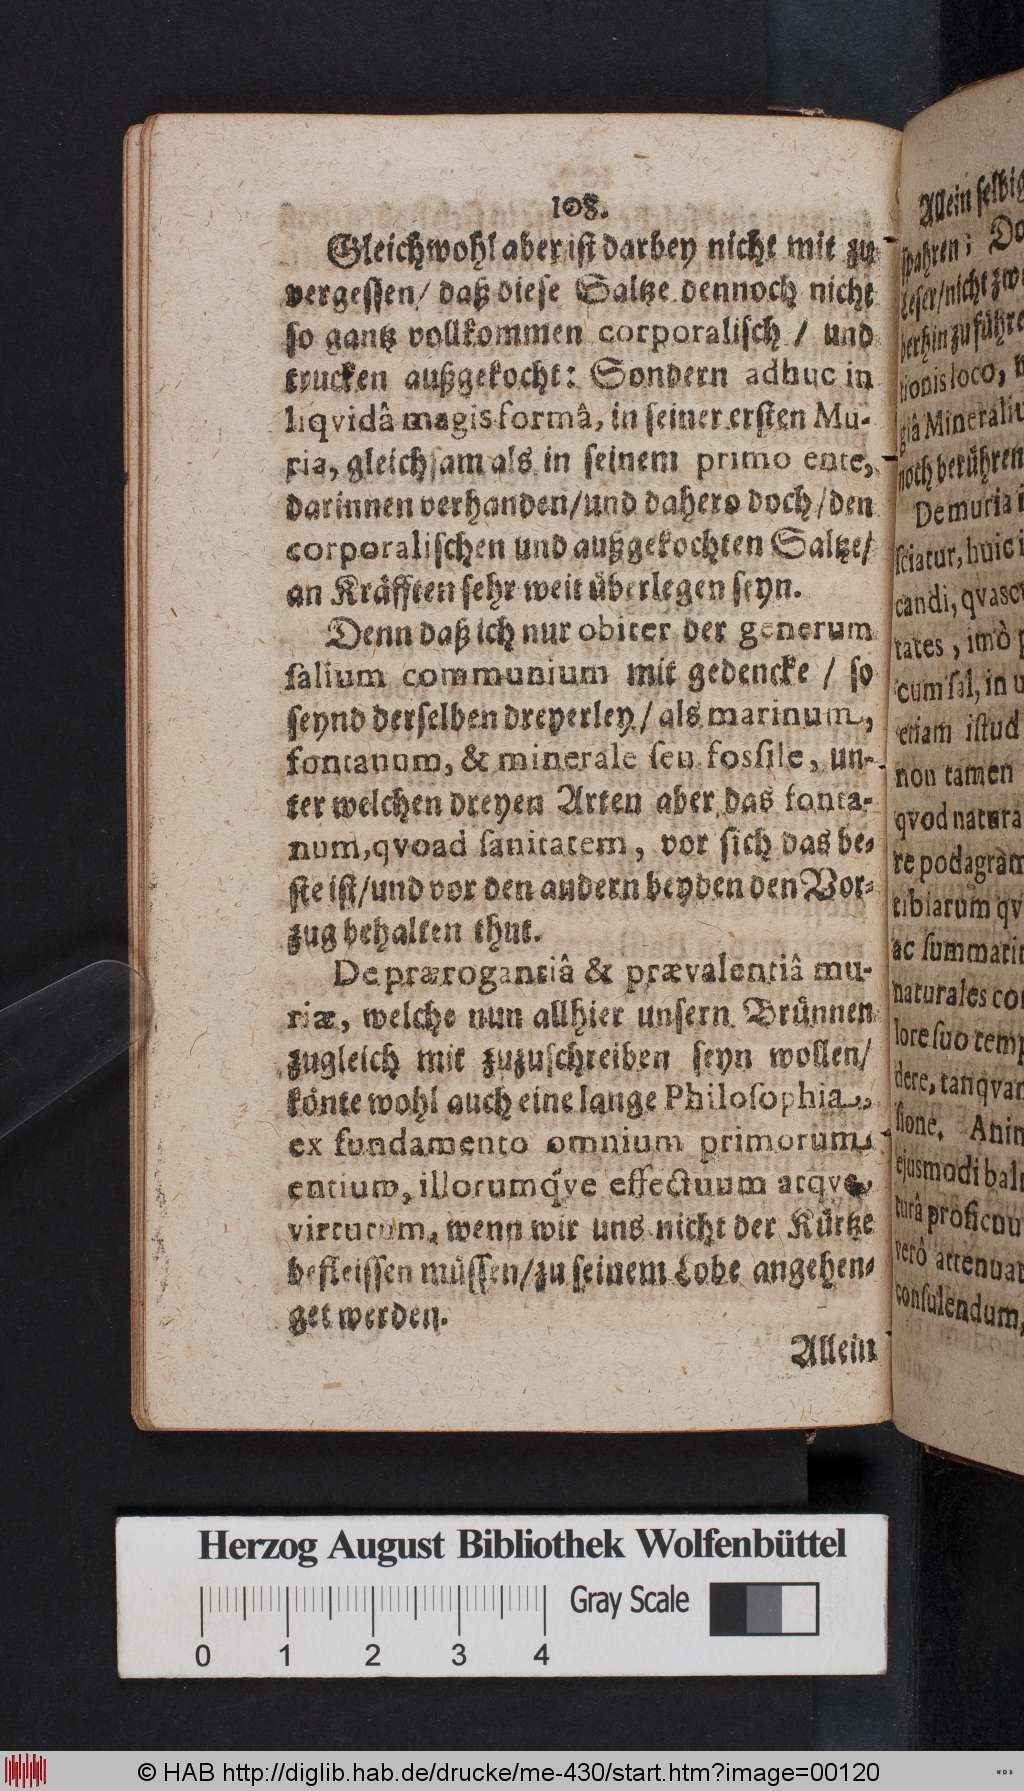 108.
Gleichwohl aber ist darbey nicht mit zu
vergessen / daß diese Saltze dennoch nicht
so gantz vollkommen corporalisch / und
trucken außgekocht: Sondern adhuc in
liqvidâ magis formâ, in seiner ersten Mu-
ria, gleichsam als in seinem primo ente,
darinnen verhanden / und dahero doch / den
corporalischen und außgekochten Saltze /
an Kräfften sehr weit überlegen seyn.
Denn daß ich nur obiter der generum
salium communium mit gedencke / so
seynd derselben dreyerley / als marinum,
fontanum, & minerale seu fossile, un-
ter welchen dreyen Arten aber das fonta-
num, qvoad sanitatem, vor sich das be-
ste ist / und vor den andern beyden den Vor-
zug behalten thut.
De prærogantiâ & prævalentiâ mu-
riæ, welche nun allhier unsern Brünnen
zugleich mit zuzuschreiben seyn wollen /
könte wohl auch eine lange Philosophia,
ex fundamento omnium primorum
entium, illorumq́ve effectuum atqve
virtutum, wenn wir uns nicht der Kürtze
befleissen müssen / zu seinem Lobe angehen-
get werden.
Allein
Allein selbig
spahren; Do
leser / nicht zwe
derhin zu führe
tionis loco,
giâ Mineraliu
noch berühren
De muria i
sciatur, huic i
candi, qvascu
tates, imò p
cum sal, in u
etiam istud
non tamen
qvod natura
re podagram
tibiarum qv
ac summati
naturales co
lore suo temp
dere, tanqvam
sione. Anim
ejusmodi bal
turâ proficuu
verò attenuat
consulendum,
Herzog August Bibliothek Wolfenbüttel
Gray Scale
0 1 2 3 4
© HAB http://diglib.hab.de/drucke/me-430/start.htm?image=00120
WDB